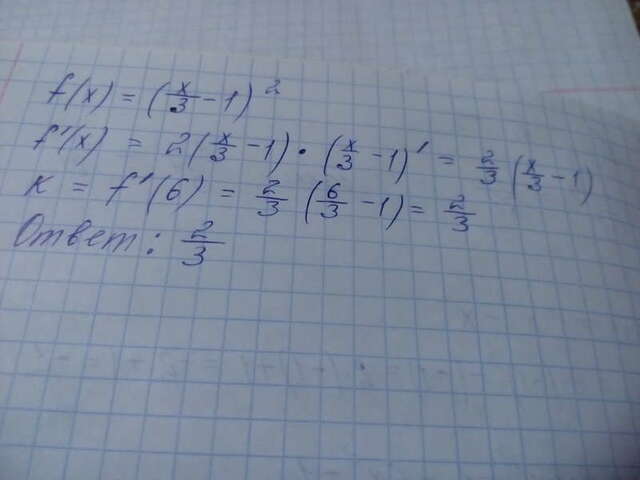 f(x) = (x/3 - 1)²
f'(x) = 2(x/3 - 1) · (x/3 - 1)' = 2/3 (x/3 - 1)
K = f'(6) = 2/3 (6/3 - 1) = 2/3
Ответ: 2/3